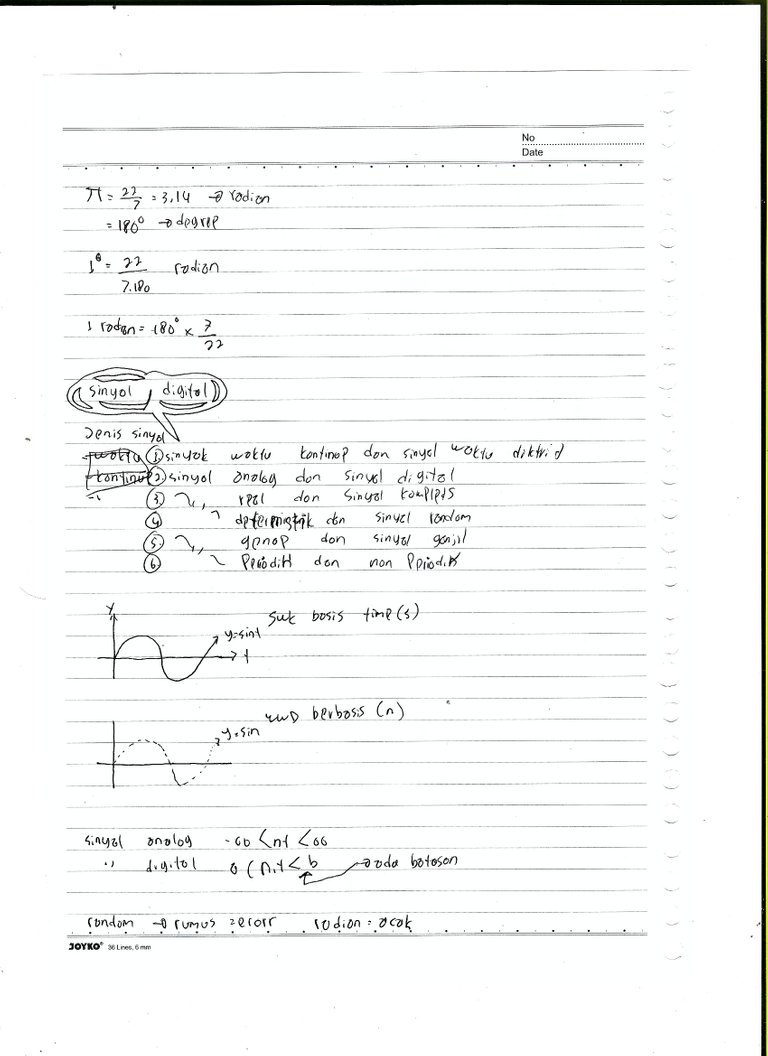 No
Date
π = 22/7 = 3,14 → radian
= 180° → degree
1° = 22/7.180 radian
1 radian = 180° × 7/22
sinyal digital
Jenis sinyal
waktu ① sinyak waktu kontinoe dan sinyal waktu diktrid
kontinue ② sinyal analog dan sinyal digital
③ ~ ,, real dan sinyal kompleks
④ ~ deterministik dan sinyal random
⑤ ~ ,, genap dan sinyal ganjil
⑥ ~ Periodik dan non Periodik
y
swk basis time (s)
y=sint
t
swD berbasis (n)
y=sin
sinyal analog -∞ < nt < ∞
,, digital a ( n.t < b → ada batasan
random → rumus = erorr radian = acak
JOYKO® 36 Lines, 6 mm